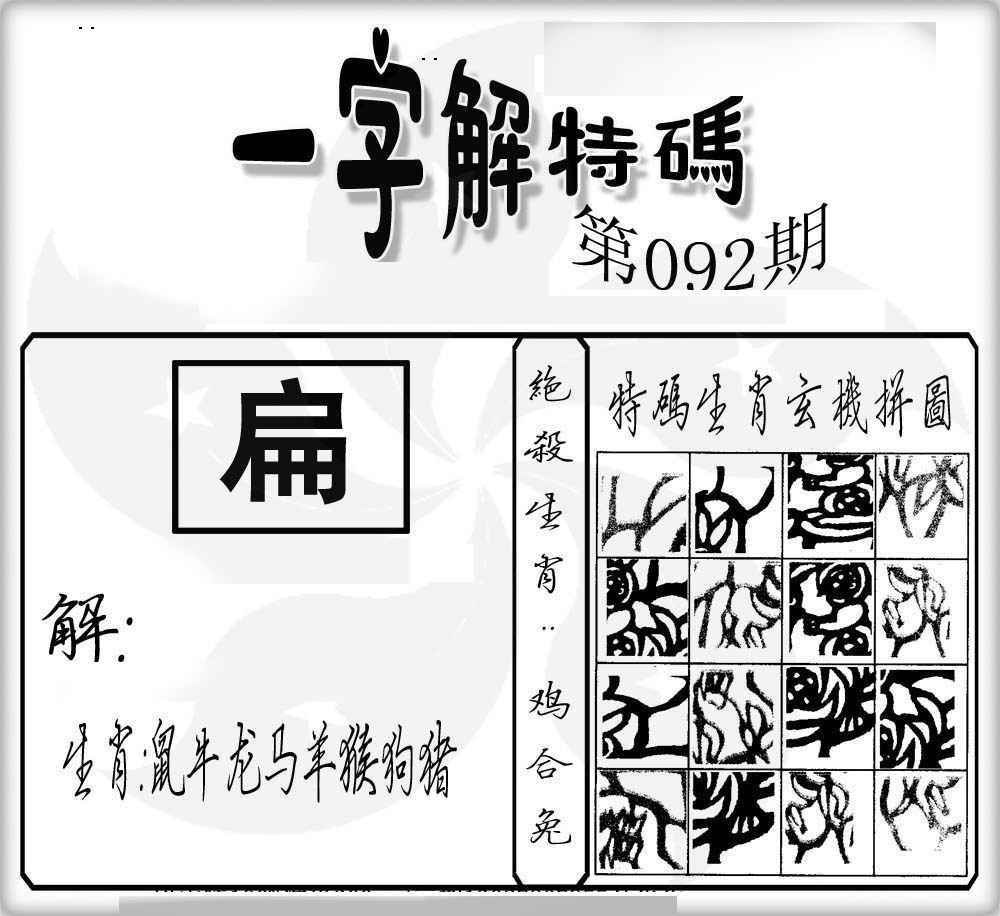 一字解特碼
第092期
扁
解:
生肖:鼠牛龙马羊猴狗猪
絶殺生肖:鸡合兔
特碼生肖玄機拼圖